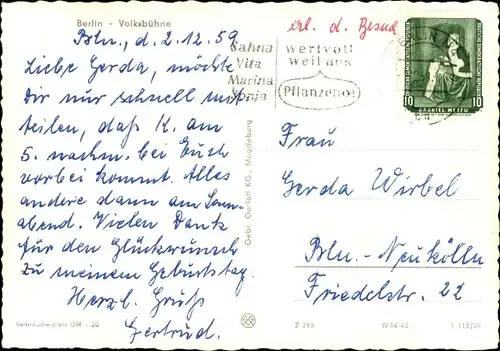 Berlin - Volksbühne
Bln., d. 2.12.59
Liebe Gerda, möchte
Dir nur schnell mit-
teilen, daß K. am
5. nachm. bei Euch
vorbei kommt. Alles
andere dann am Sonn-
abend. Vielen Dank
für den Glückwunsch
zu meinem Geburtstag.
Herzl. Gruß
Gertrud.
erl. d. Besuch
Sahna
Vita
Marina
Sonja
wertvoll
weil aus
Pflanzenöl
BERLIN
10 GABRIEL METSU 10
Frau
Gerda Wirbel
Bln.-Neukölln
Friedelstr. 22
Gebr. Garloff KG., Magdeburg
Verbraucherpreis DM -,20
Z 293 W-14-45 T 115/59